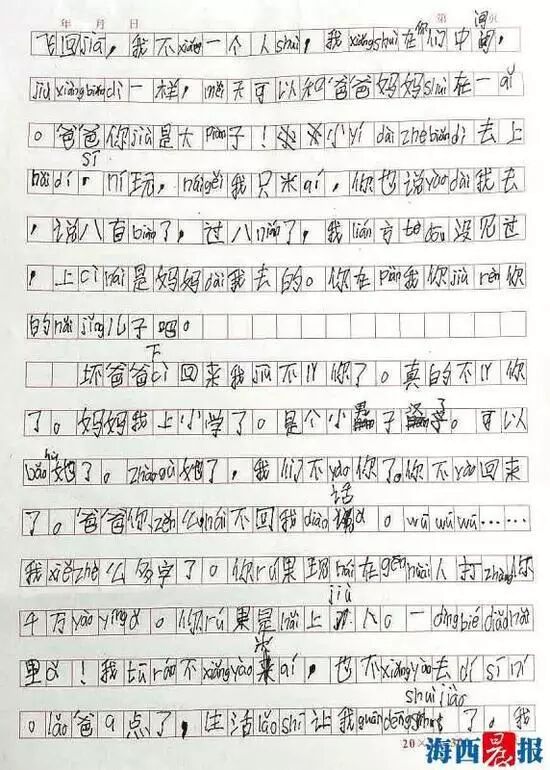 年 月 日 第 页
飞回jiā，我不xiǎng一个人shuì，我xiǎngshuì在你们中间，
一样，天可以和爸爸妈妈shuì在一
。爸爸你jiù是大piàn子！小yí dài去上
hǎi dí sī ní玩，我只米，你也说yào dài我去
，说八百biàn了，过八nián了，我lián方tè dōu没见过
，上cì hái是妈妈dài我去的。你在piàn我你jiù rēn你
的儿子吧。
坏爸爸下cì回来我jiù不认你了。真的不认你
了。妈妈我上小学了。是个小子了。可以
bǎo hù她了。zhào gù她了，我们不yào你了。你不yào回来
了。爸爸你zěn么hái不回我diàn话a。wū wū wū……
我xiě zhè么多字了。你rú果现hái在gēn huài人打zhàng你
千万yào yíng a。你rú果是hái上jiù人。一dìng bié diào hǎi
里a！我tū rán不xiǎng yào米qí，也不xiǎng yào去dí sī ní
。lǎo爸9点了，生活lǎo shī让我guān dēng shuì jiào了。我
20×
海西晨报